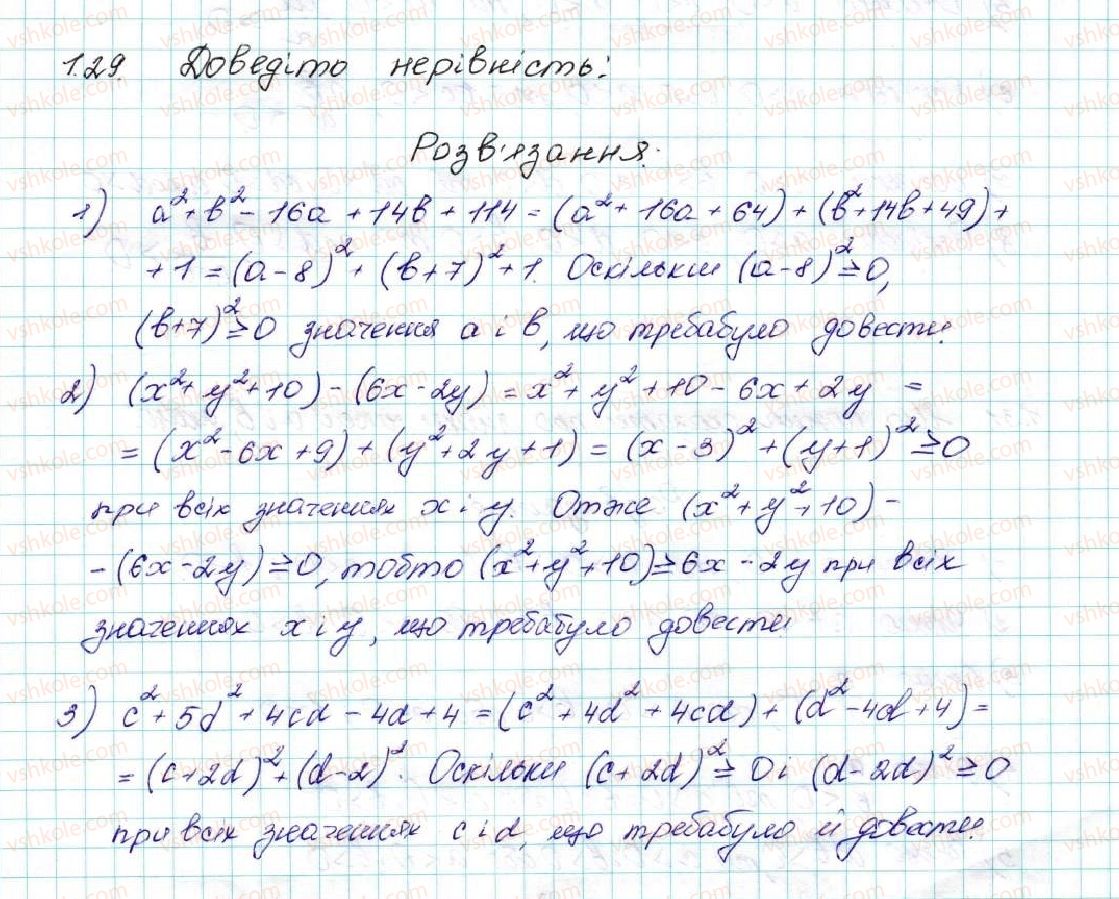 1.29. Доведіто нерівність:
Розв'язання.
1) a²+b²-16a+14b+114=(a²+16a+64)+(b²+14b+49)+
+1=(a-8)²+(b+7)²+1. Оскільки (a-8)²≥0,
(b+7)²≥0 значення a і b, що требабуло довести.
2) (x²+y²+10)-(6x-2y)=x²+y²+10-6x+2y =
=(x²-6x+9)+(y²+2y+1)=(x-3)²+(y+1)²≥0
при всіх значеннях x і y. Отже (x²+y²+10)-
-(6x-2y)≥0, тобто (x²+y²+10)≥6x-2y при всіх
значеннях x і y, що требабуло довести
3) c²+5d²+4cd-4d+4=(c²+4d²+4cd)+(d²-4d+4)=
=(c+2d)²+(d-2)². Оскільки (c+2d)²≥0 і (d-2d)²≥0
при всіх значеннях c і d, що требабуло й довести.